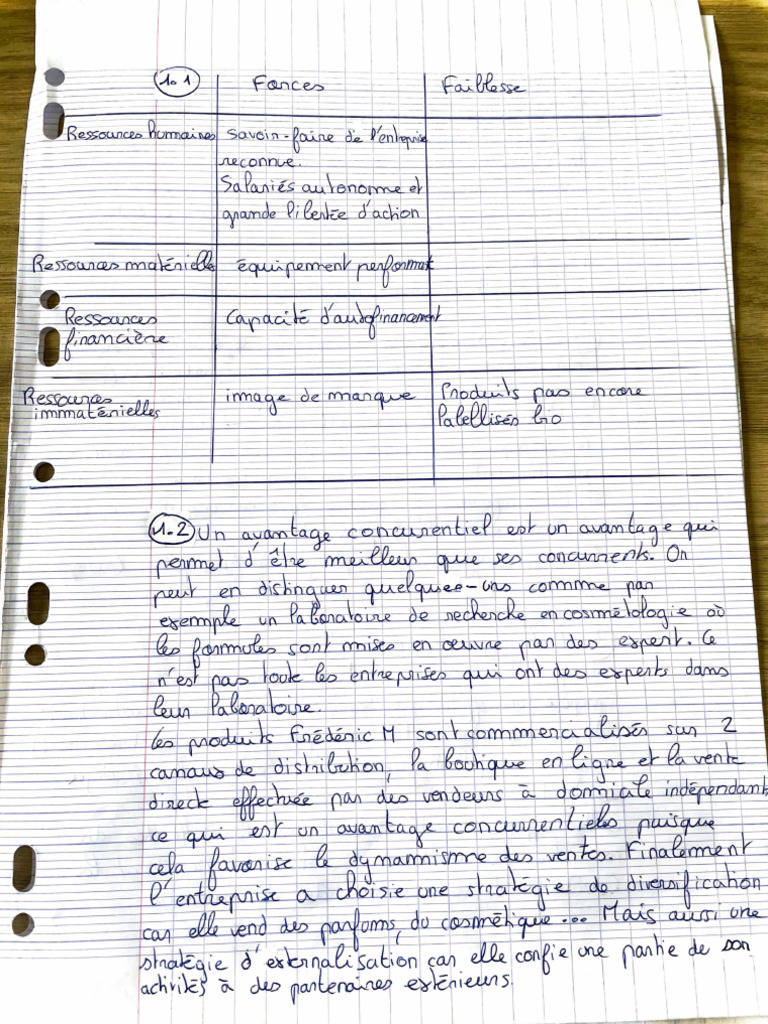 1.1 Forces Faiblesse
Ressources humaines savoir-faire de l'entreprise
reconnue.
Salariés autonome et
grande libertée d'action
Ressources matérielle équipement performant
Ressources capacité d'autofinancement
financière
Ressources image de marque Produits pas encore
immatérielles labellisés bio
1.2 Un avantage concurentiel est un avantage qui
permet d'être meilleur que ses concurrents. On
peut en distinguer quelques-uns commme par
exemple un laboratoire de recherche en cosmétologie où
les formules sont mises en œuvre par des expert. Ce
n'est pas toute les entreprises qui ont des experts dans
leur laboratoire.
Les produits Frédéric M sont commercialisés sur 2
canaus de distribution, la boutique en ligne et la vente
direct effectuée par des vendeurs à domicile indépendant,
ce qui est un avantage concurrentiels puisque
cela favorise le dynammisme des ventes. Finalement
l'entreprise a choisie une stratégie de diversification
car elle vend des parfums, du cosmétique... Mais aussi une
stratégie d'externalisation car elle confie une partie de son
activités à des partenaires extérieurs.